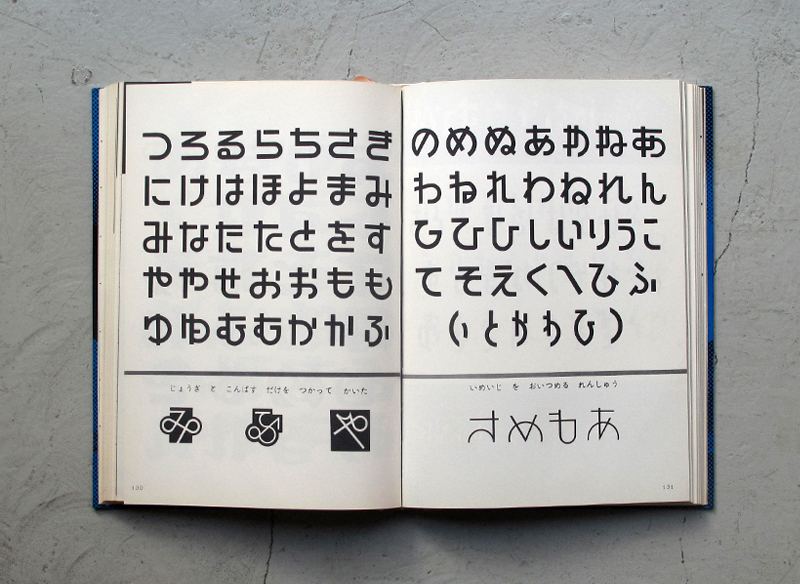 つろるらちさき
にけはほよまみ
みなたたとをす
ややせおおもも
ゆゆむむかかふ
じょうぎ と こんぱす だけを つかって かいた
み
や
130
のめぬあぬねあ
わねれわねれん
ひひひしいりうこ
てそえくへひふ
(いとかわひ)
いめいじ を おいつめる れんしゅう
さめもあ
131